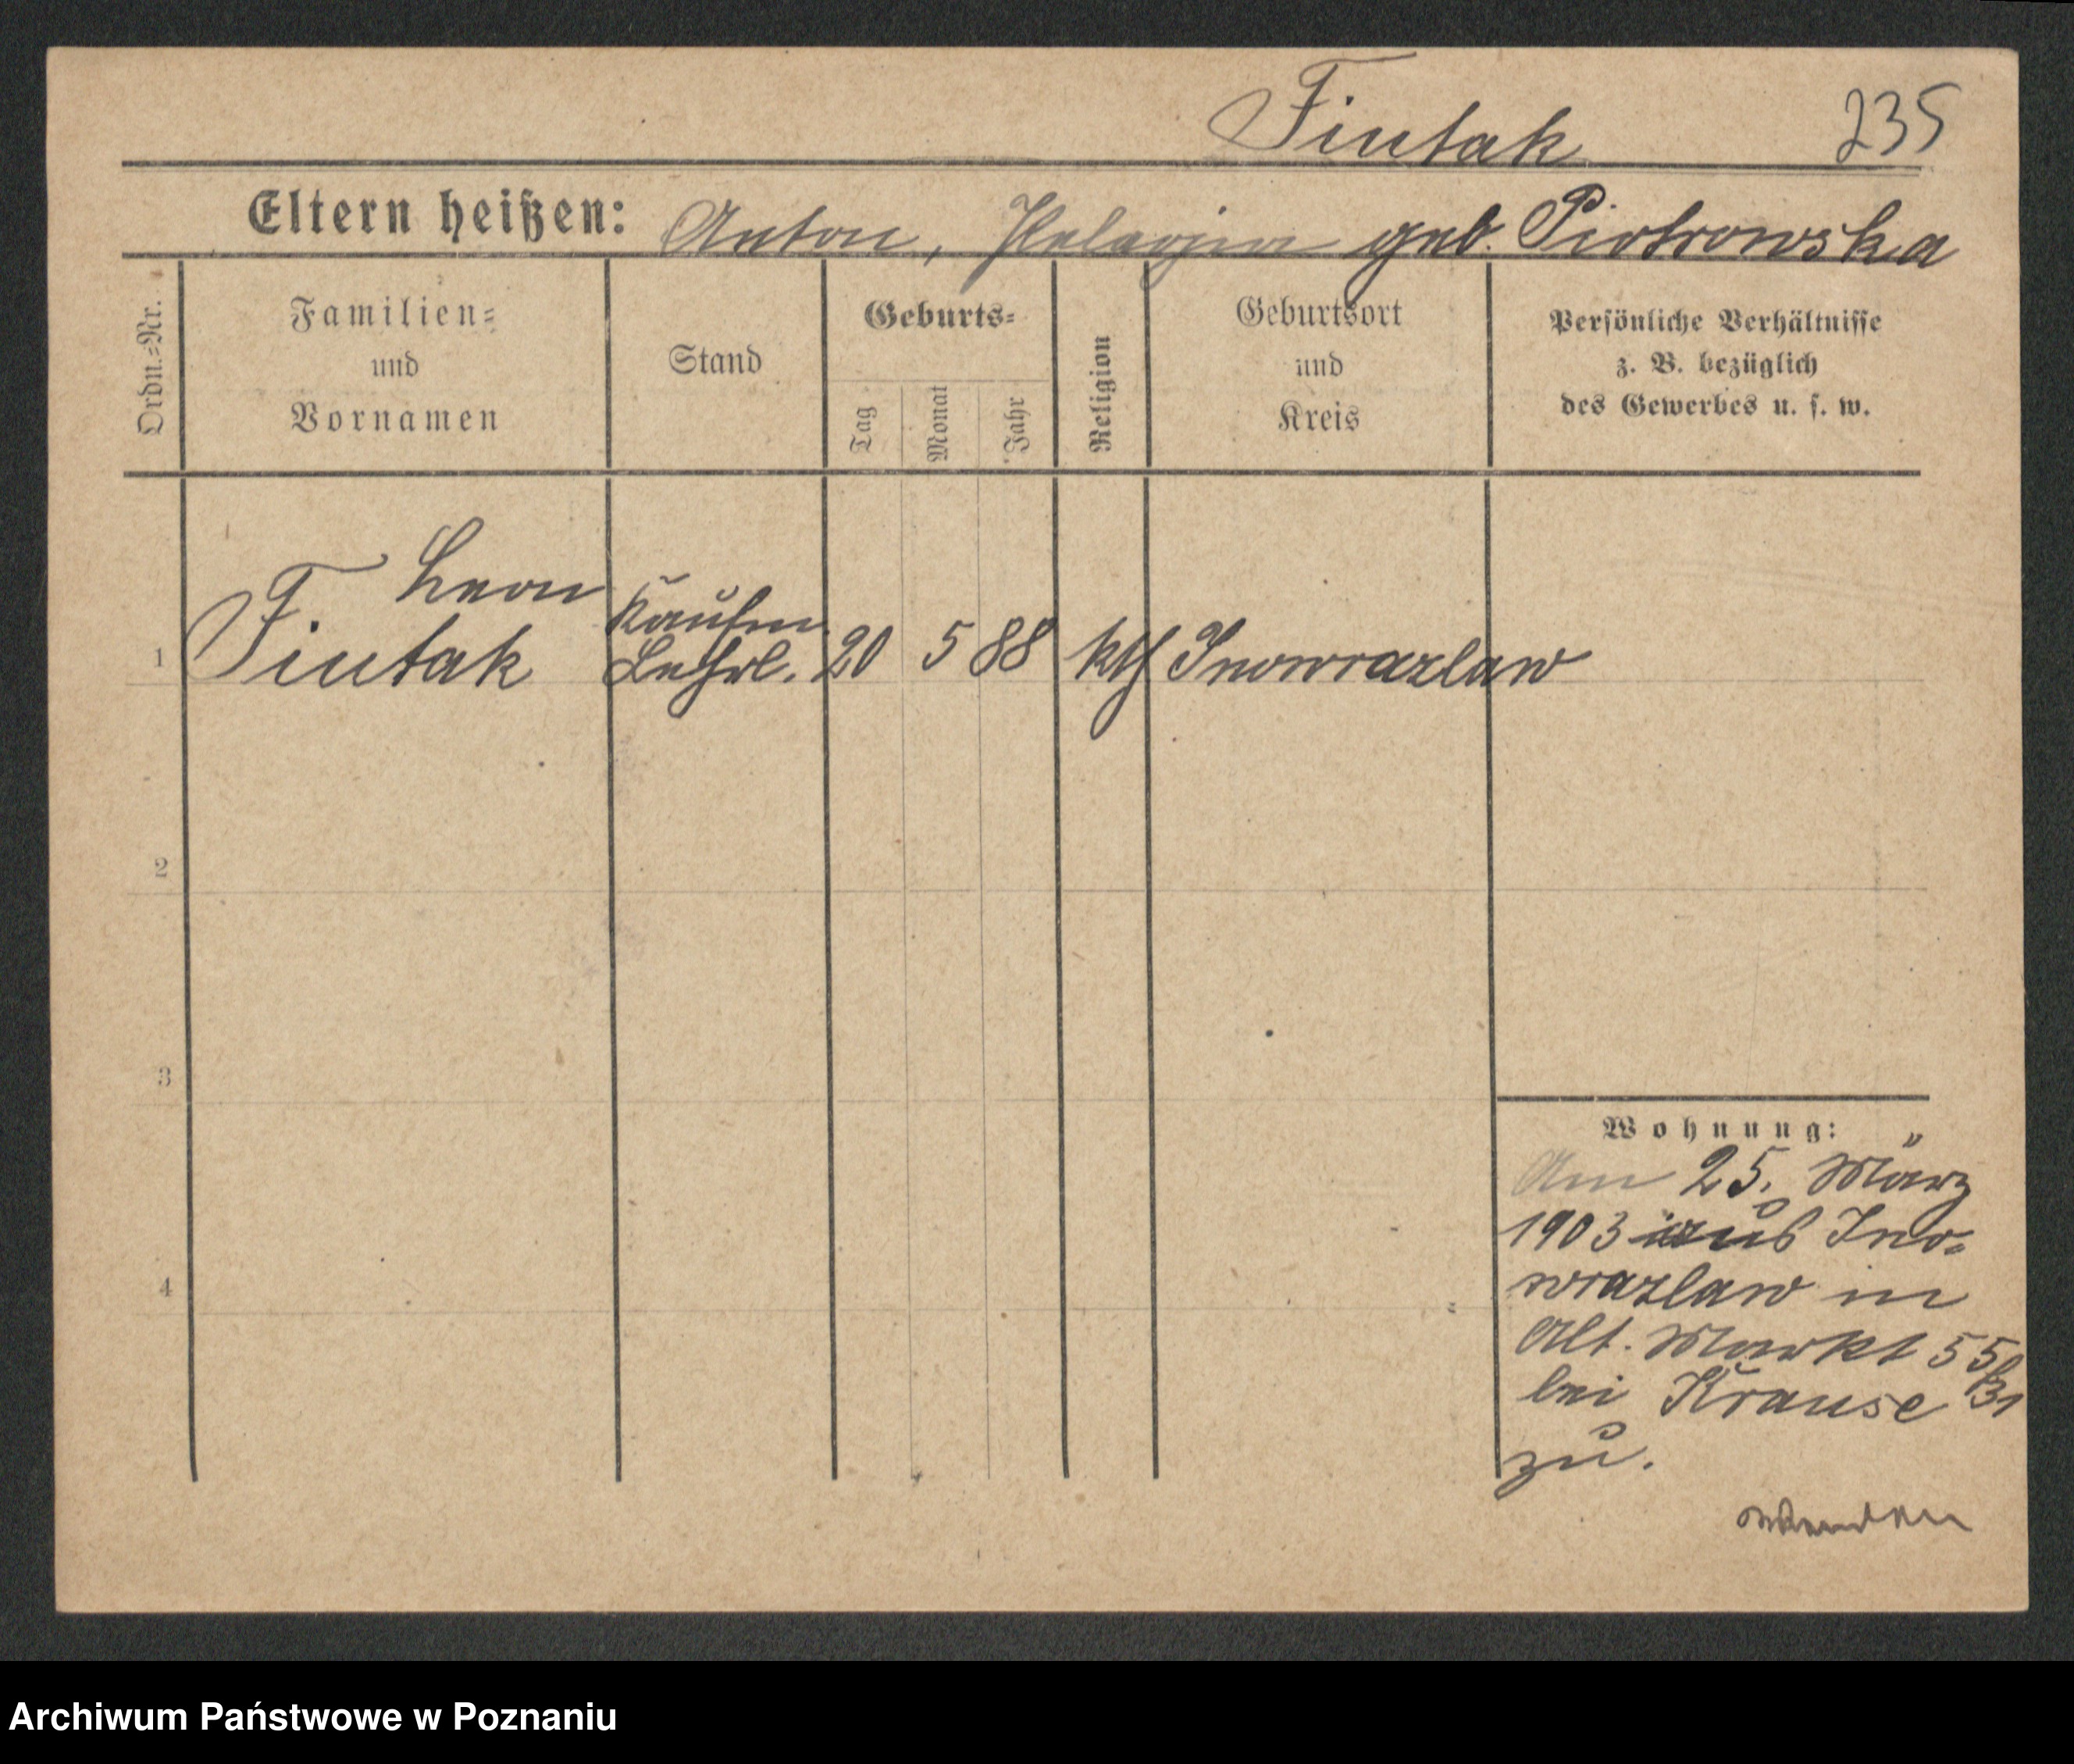 Fiutak 235
Eltern heißen: Anton, Pelagia geb. Piotrowska
Ordn.=Nr.
Familien=
und
Vornamen
Stand
Geburts=
Tag
Monat
Jahr
Religion
Geburtsort
und
Kreis
Persönliche Verhältnisse
z. B. bezüglich
des Gewerbes u. s. w.
Leon
Kaufm.
1 Fiutak Lehrl. 20 5 88 kth Inowrazlaw
2
3
4
Wohnung:
Am 25. März
1903 aus Ino=
wrazlaw in
Alt. Markt 55
bei Krause
zu.
wenden
Archiwum Państwowe w Poznaniu